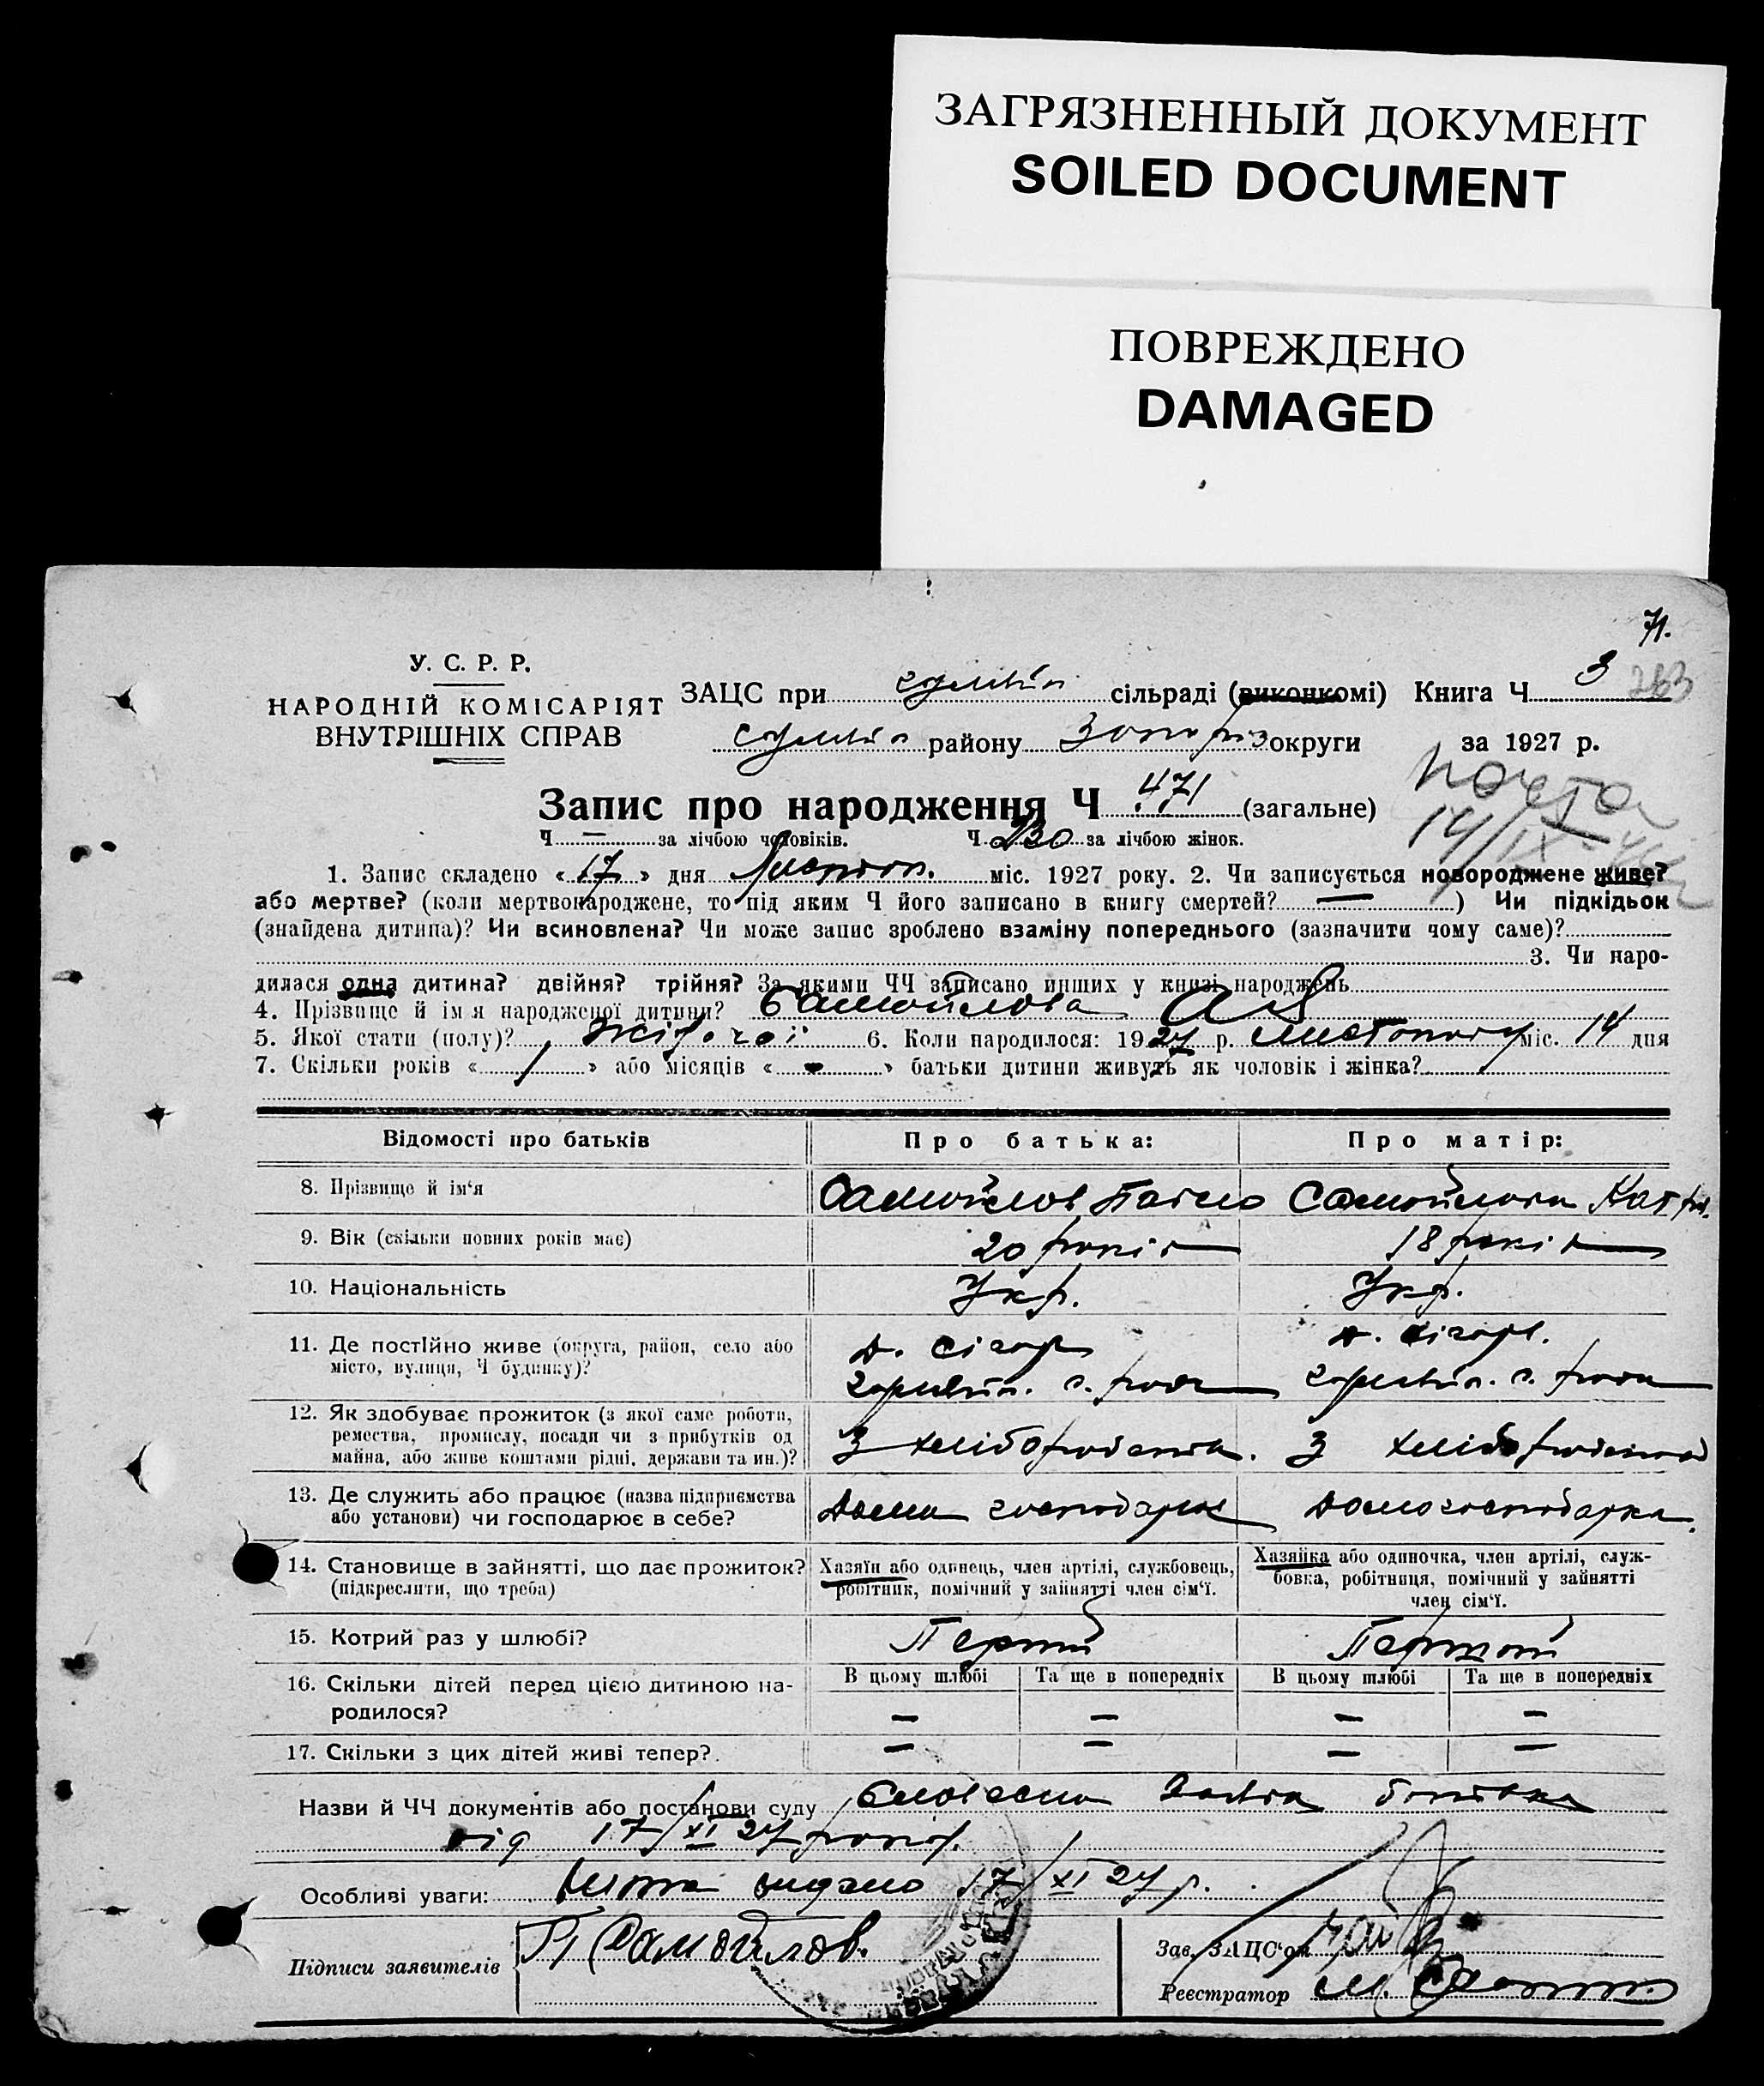 ЗАГРЯЗНЕННЫЙ ДОКУМЕНТ
SOILED DOCUMENT
ПОВРЕЖДЕНО
DAMAGED
71.
У. С. Р. Р.
НАРОДНІЙ КОМІСАРІЯТ
ВНУТРІШНІХ СПРАВ
ЗАЦС при сільраді (виконкомі) Книга Ч 3 283
району округи за 1927 р.
Запис про народження Ч 471 (загальне)
Ч — за лічбою чоловіків. Ч 230 за лічбою жінок.
1. Запис складено «17» дня Листоп. міс. 1927 року. 2. Чи записується новороджене живе?
або мертве? (коли мертвонароджене, то під яким Ч його записано в книгу смертей? — ) Чи підкідьок
(знайдена дитина)? Чи всиновлена? Чи може запис зроблено взаміну попереднього (зазначити чому саме)?
3. Чи наро-
дилася одна дитина? двійня? трійня? За якими ЧЧ записано инших у книзі народжень
4. Прізвище й ім'я народженої дитини? Самойлова
5. Якої стати (полу)? жіночої 6. Коли народилося: 1927 р. листопаду міс. 14 дня
7. Скільки років « / » або місяців « — » батьки дитини живуть як чоловік і жінка?
Відомості про батьків Про батька: Про матір:
8. Прізвище й ім'я Самойлов Павло Самойлова Катр.
9. Вік (скільки повних років має) 20 років 18 років
10. Національність Укр. Укр.
11. Де постійно живе (округа, район, село або
місто, вулиця, Ч будинку)?
12. Як здобуває прожиток (з якої саме роботи,
ремества, промислу, посади чи з прибутків од
майна, або живе коштами рідні, держави та ин.)? З хліборобства. З хліборобства
13. Де служить або працює (назва підприємства
або установи) чи господарює в себе? Дома господарює Домогосподарка.
14. Становище в зайнятті, що дає прожиток?
(підкреслити, що треба)
Хазяїн або одинець, член артілі, службовець,
робітник, помічний у зайнятті член сім'ї.
Хазяйка або одиночка, член артілі, служ-
бовка, робітниця, помічний у зайнятті
член сім'ї.
15. Котрий раз у шлюбі? Перший Перший
16. Скільки дітей перед цією дитиною на-
родилося?
В цьому шлюбі Та ще в попередніх В цьому шлюбі Та ще в попередніх
— — — —
17. Скільки з цих дітей живі тепер? — — — —
Назви й ЧЧ документів або постанови суду Словесна заява батька
від 17/XI 27 року.
Особливі уваги: видано 17/XI 27 р.
Підписи заявителів П Самойлов.
Зав. ЗАЦС'ом
Реєстратор М.